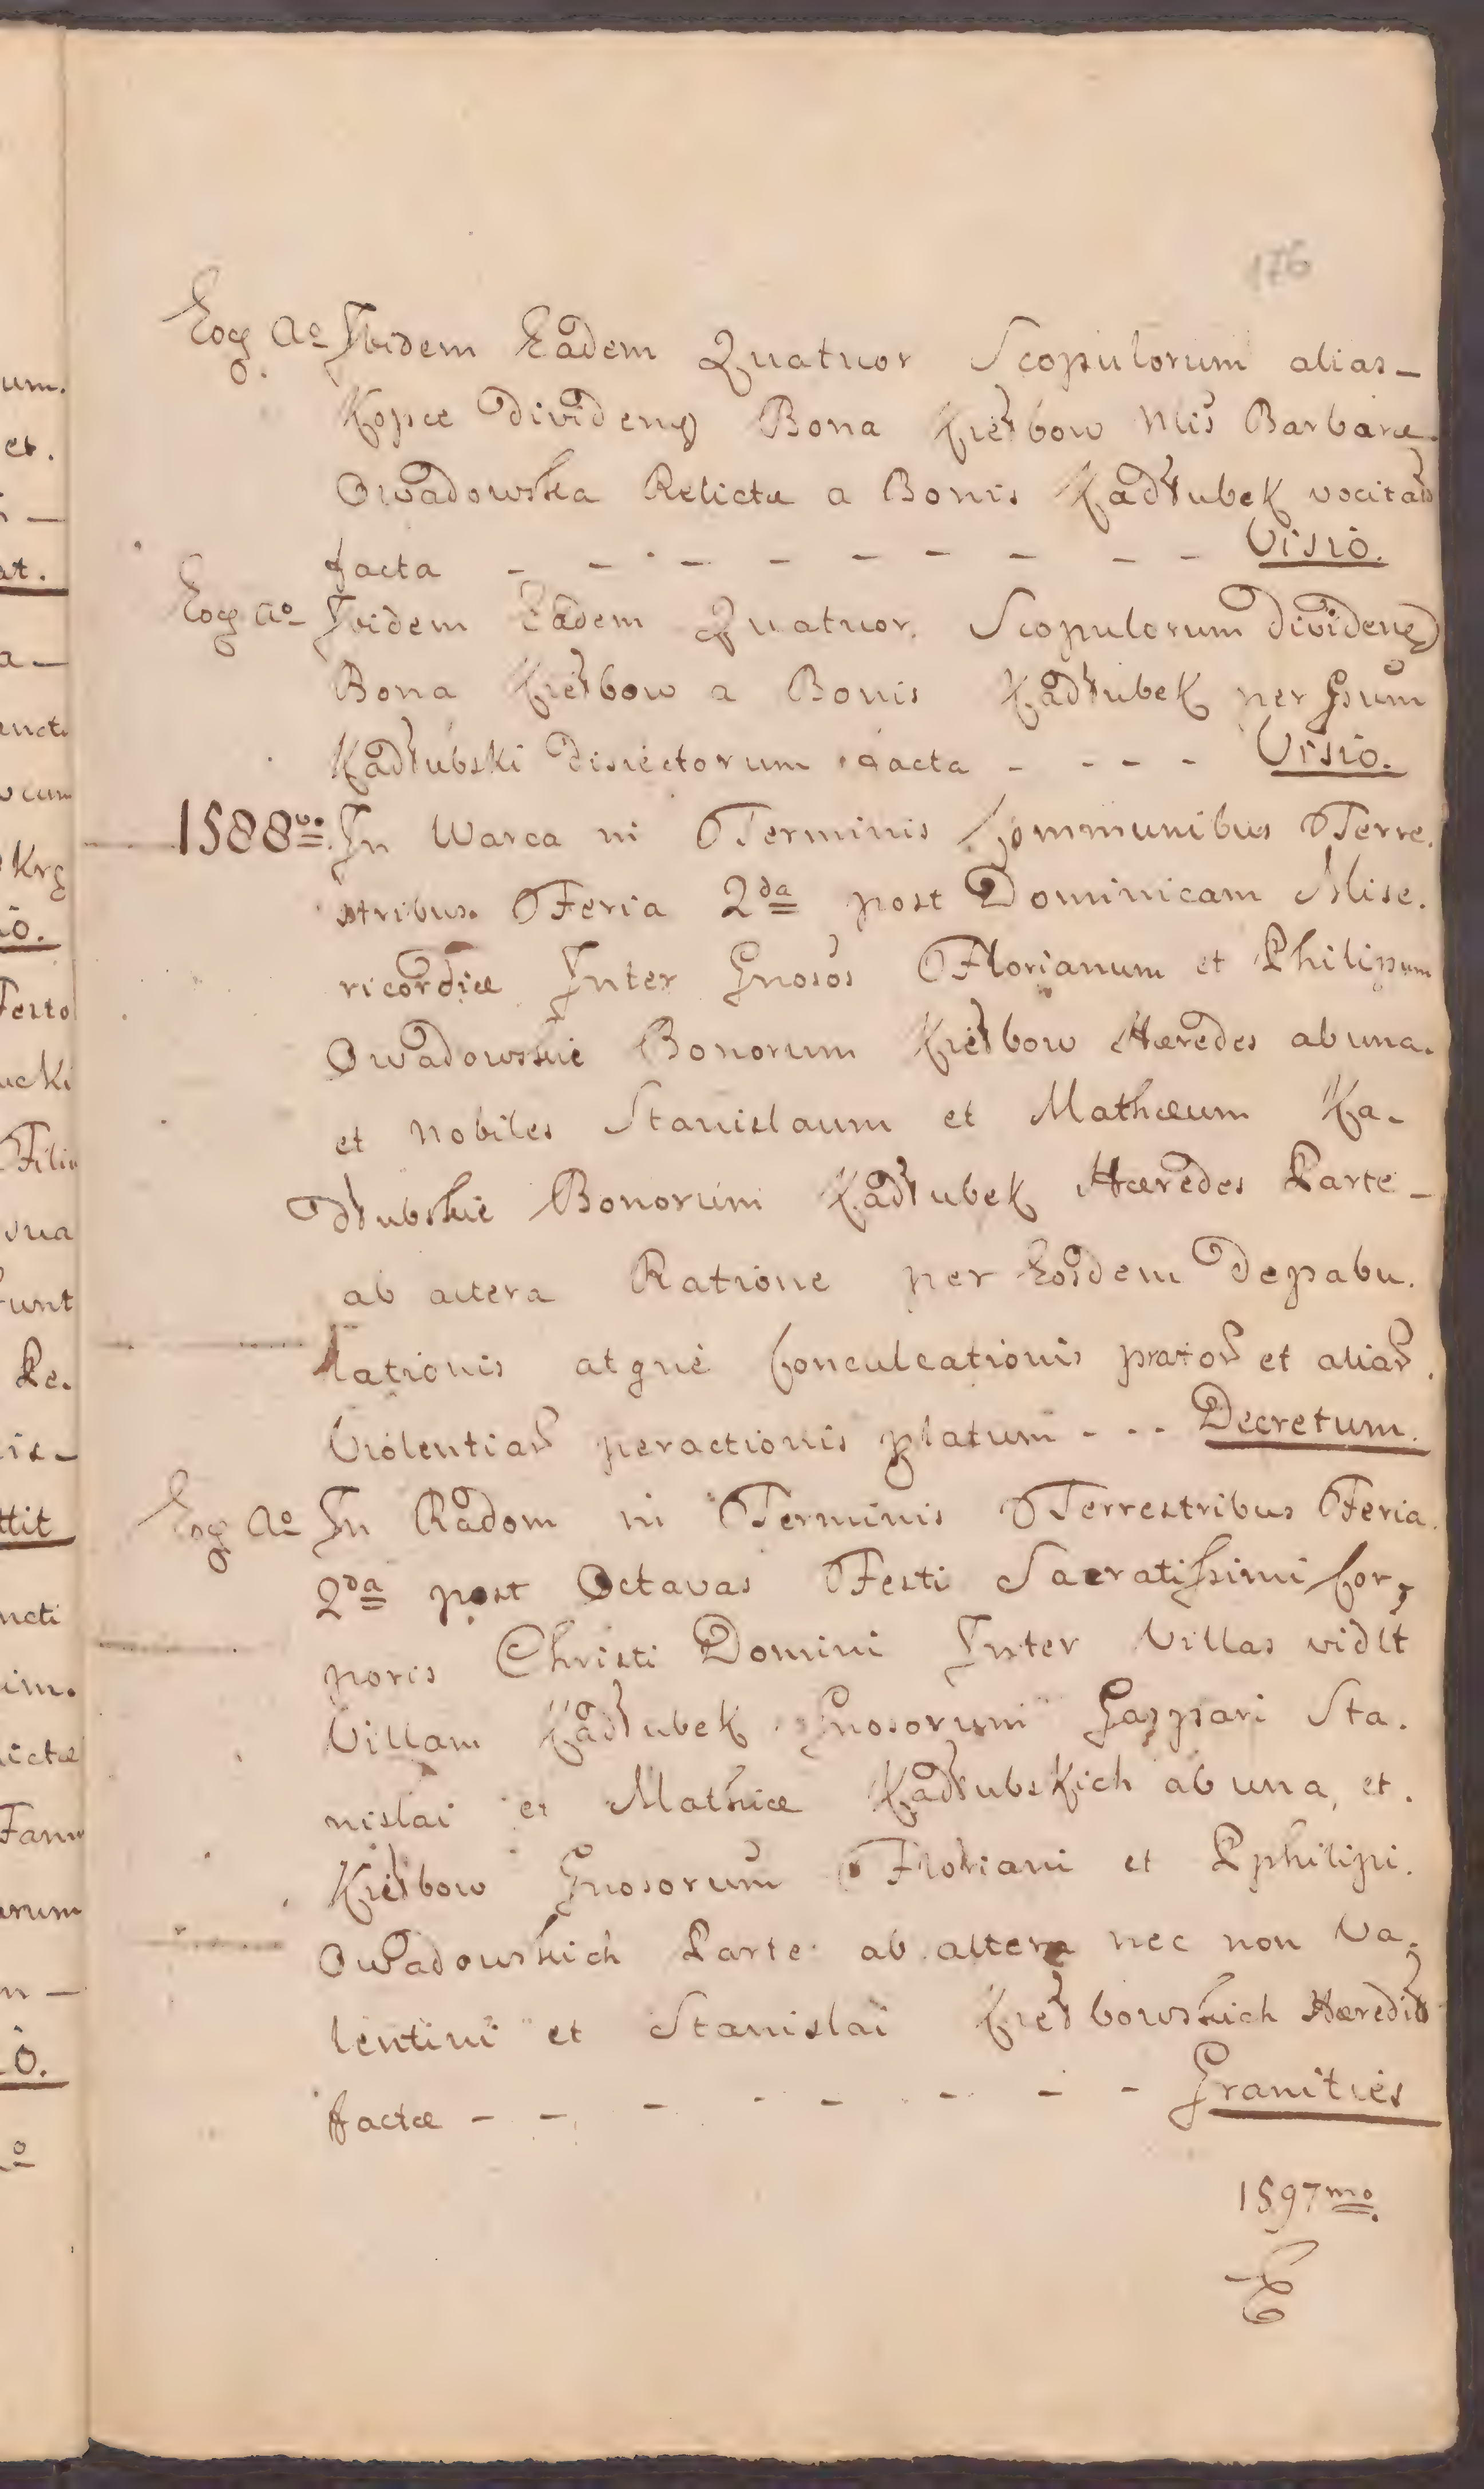 176
Eoq Ao Ibidem Eadem Quatuor Scopulorum alias
Kopce Dividenq Bona Kiełbow Mis Barbaræ
Owadowska Relictæ a Bonis Kadłubek vocitat
facta - - - - - - - - - Visio.
Eoq Ao Ibidem Eadem Quatuor Scopulorum Dividenq
Bona Kiełbow a Bonis Kadłubek per Gsum
Kadłubski disiectorum facta - - - - Visio.
1588vo. In Warca in Terminis Communibus Terre.
stribus. Feria 2da post Dominicam Mise.
ricordiæ Inter Gnosos Florianum et Philipum
Owadowskie Bonorum Kiełbow Hæredes ab una.
et nobiles Stanislaum et Mathæum Ka-
dłubskie Bonorum Kadłubek Hæredes Parte -
ab altera Ratione per Eosdem Depabu.
lationis atque Conculcationis prator et aliar.
Violentiar peractionis platum - - - Decretum.
Eoq Ao In Radom in Terminis Terrestribus Feria
2da post Octavas Festi Sacratissimi Cor,
poris Christi Domini Inter Villas vidlt
Villam Kadłubek Gnosorum Gaspari Sta.
nislai et Mathiæ Kadłubskich ab una, et.
Kiełbow Gnosorum Floriani et Pphilipi.
Owadowskich Parte ab altera nec non Va.
lentini et Stanislai Kiełbowskich Hæredib
factæ - - - - - - - - Granities
1597mo.